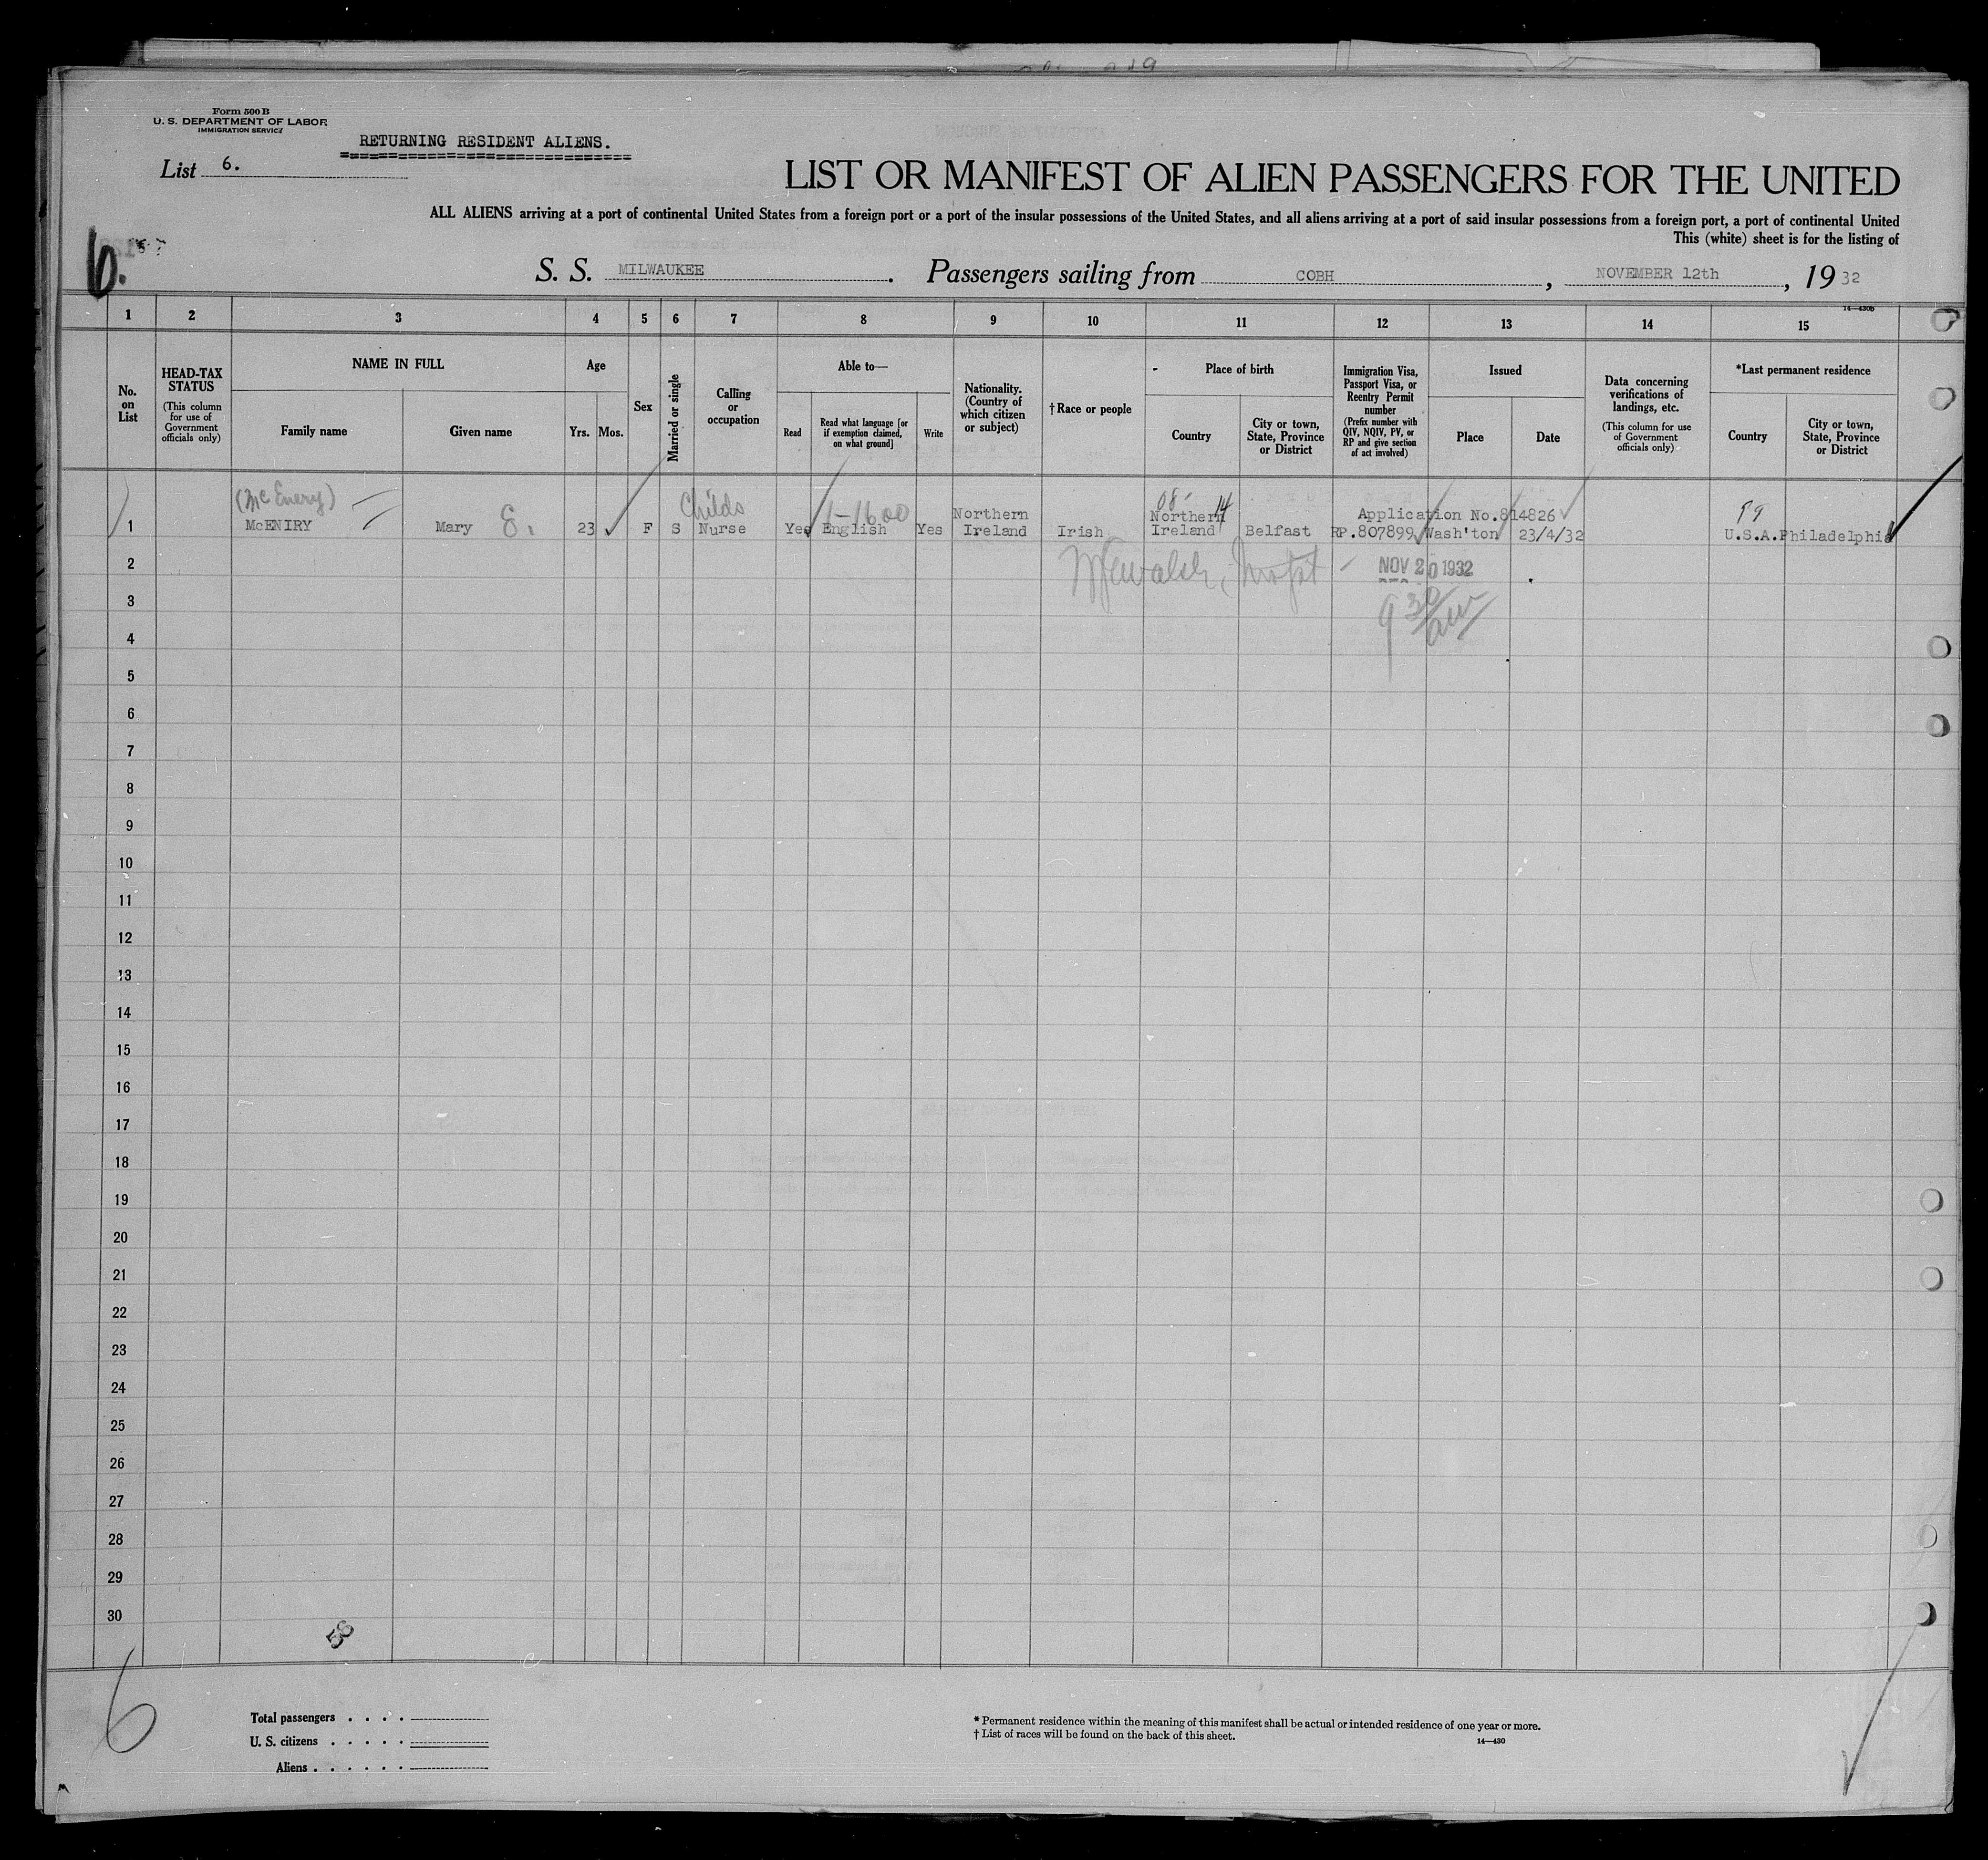 Form 500 B
U. S. DEPARTMENT OF LABOR
IMMIGRATION SERVICE
RETURNING RESIDENT ALIENS.
List 6.
LIST OR MANIFEST OF ALIEN PASSENGERS FOR THE UNITED
ALL ALIENS arriving at a port of continental United States from a foreign port or a port of the insular possessions of the United States, and all aliens arriving at a port of said insular possessions from a foreign port, a port of continental United
This (white) sheet is for the listing of
6.
S. S. MILWAUKEE. Passengers sailing from COBH, NOVEMBER 12th, 19 32
14—430b
1 2 3 4 5 6 7 8 9 10 11 12 13 14 15
No. on List
HEAD-TAX STATUS (This column for use of Government officials only)
NAME IN FULL
Family name
Given name
Age
Yrs. Mos.
Sex
Married or single
Calling or occupation
Able to—
Read
Read what language [or if exemption claimed, on what ground]
Write
Nationality. (Country of which citizen or subject)
†Race or people
Place of birth
Country
City or town, State, Province or District
Immigration Visa, Passport Visa, or Reentry Permit number (Prefix number with QIV, NQIV, PV, or RP and give section of act involved)
Issued
Place
Date
Data concerning verifications of landings, etc. (This column for use of Government officials only)
*Last permanent residence
Country
City or town, State, Province or District
(McEnery) Childs 1-1600 08- 14 99
Northern Northern Application No.814826
1 McENIRY Mary E. 23 F S Nurse Yes English Yes Ireland Irish Ireland Belfast RP.807899 Wash'ton 23/4/32 U.S.A. Philadelphia
2 NOV 20 1932
3 9 30/AM
4
5
6
7
8
9
10
11
12
13
14
15
16
17
18
19
20
21
22
23
24
25
26
27
28
29
30
6
Total passengers . . . .
U. S. citizens . . . . .
Aliens . . . . . .
* Permanent residence within the meaning of this manifest shall be actual or intended residence of one year or more.
† List of races will be found on the back of this sheet.
14—430